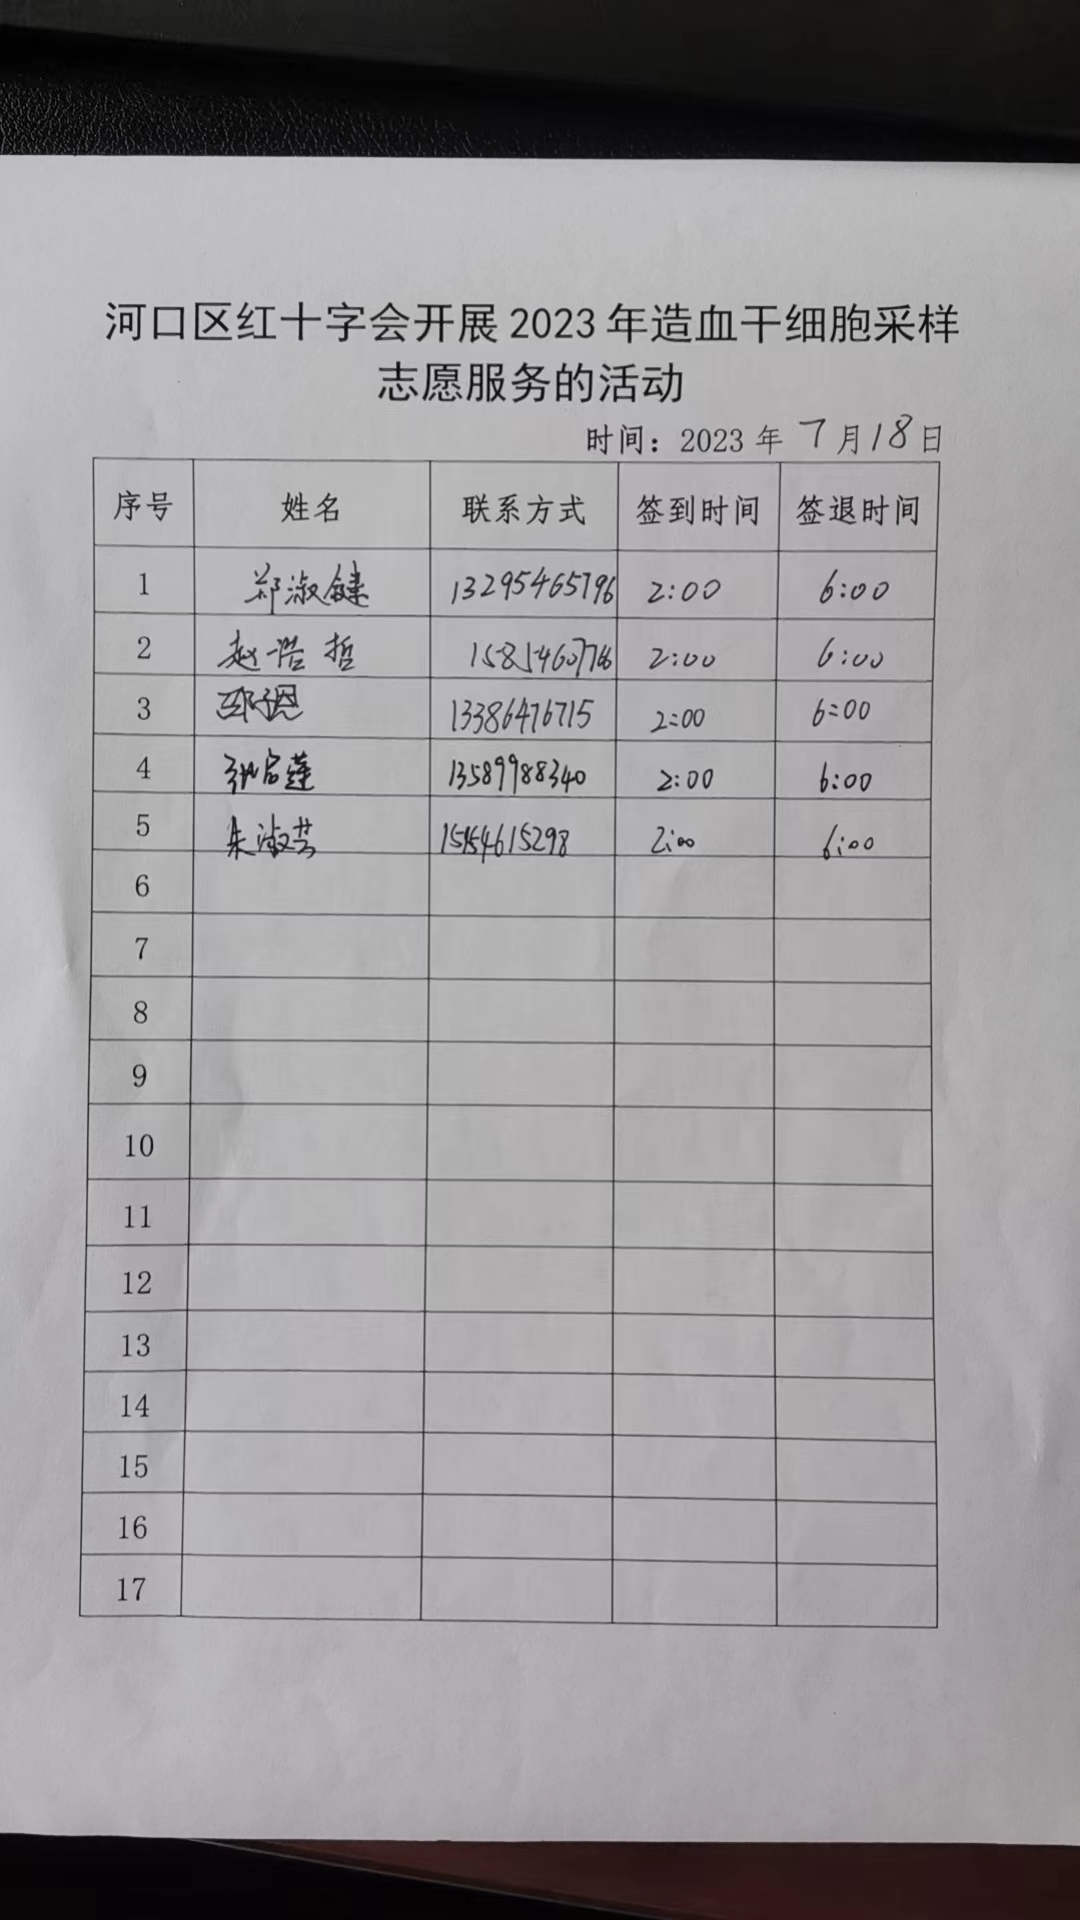 河口区红十字会开展2023年造血干细胞采样
志愿服务的活动
时间：2023年7月18日
序号 姓名 联系方式 签到时间 签退时间
1 郑淑键 13295465796 2:00 6:00
2 赵浩哲 2:00 6:00
3 13386476715 2:00 6:00
4 13589988340 2:00 6:00
5 朱淑芸 15154615298 2:00 6:00
6
7
8
9
10
11
12
13
14
15
16
17